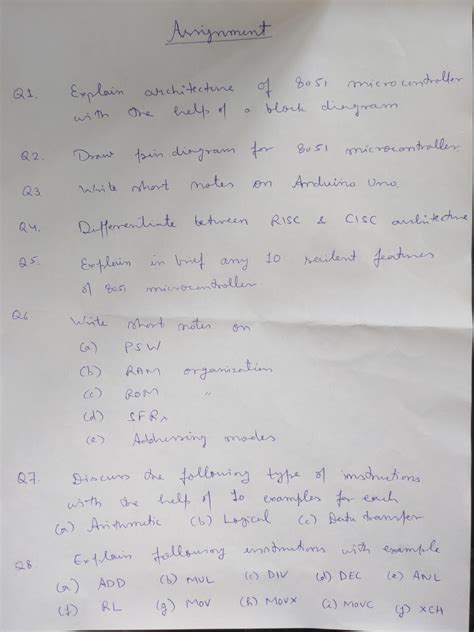 Assignment
Q1. Explain architecture of 8051 microcontroller
with the help of a block diagram
Q2. Draw pin diagram for 8051 microcontroller
Q3 Write short notes on Arduino Uno.
Q4. Differentiate between RISC & CISC architecture
Q5. Explain in brief any 10 salient features
of 8051 microcontroller
Q6 Write short notes on
(a) PSW
(b) RAM organization
(c) ROM "
(d) SFRs
(e) Addressing modes
Q7. Discuss the following type of instructions
with the help of 10 examples for each
(a) Arithmatic (b) Logical (c) Data transfer
Q8 Explain following instructions with example
(a) ADD (b) MUL (c) DIV (d) DEC (e) ANL
(f) RL (g) MOV (h) MOVX (i) MOVC (j) XCH